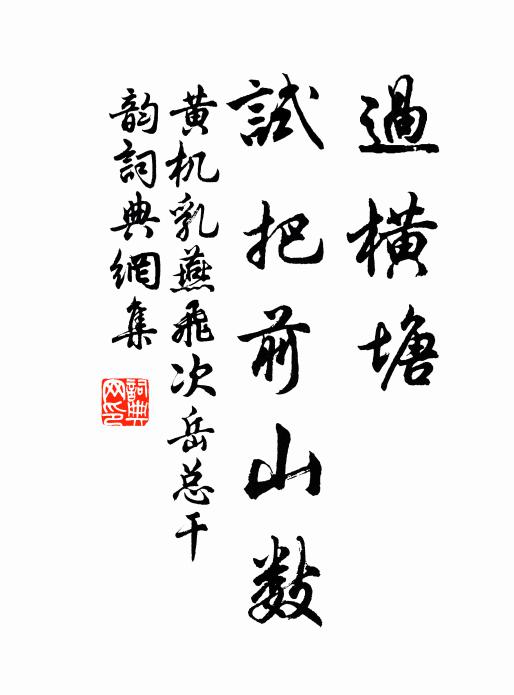 過橫塘
試把前山數
黄机乳燕飛次岳总干
韵詞典網集
詞典網印